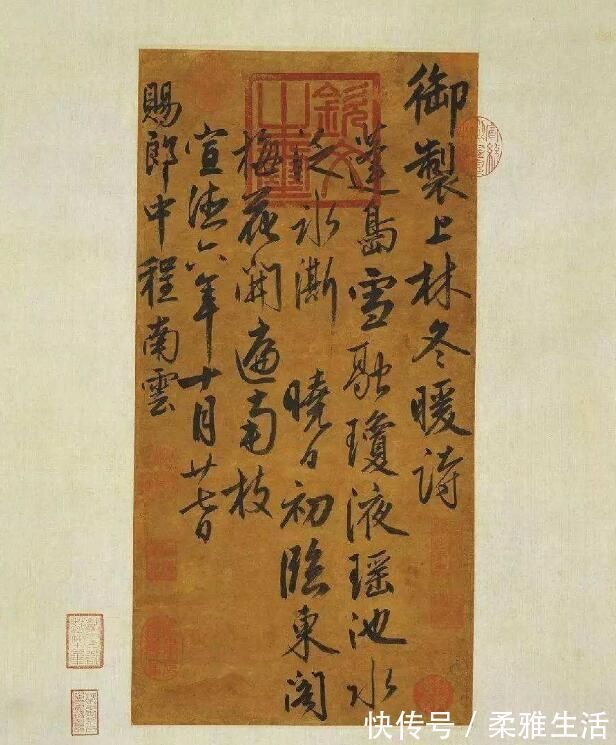 御製上林冬暖詩
蓬島雪融瓊液瑶池水
泛冰澌 曉日初臨東閣
梅花開遍南枝
宣德六年十月廿七日
賜郎中程南雲
欽文之璽
快传号 / 柔雅生活